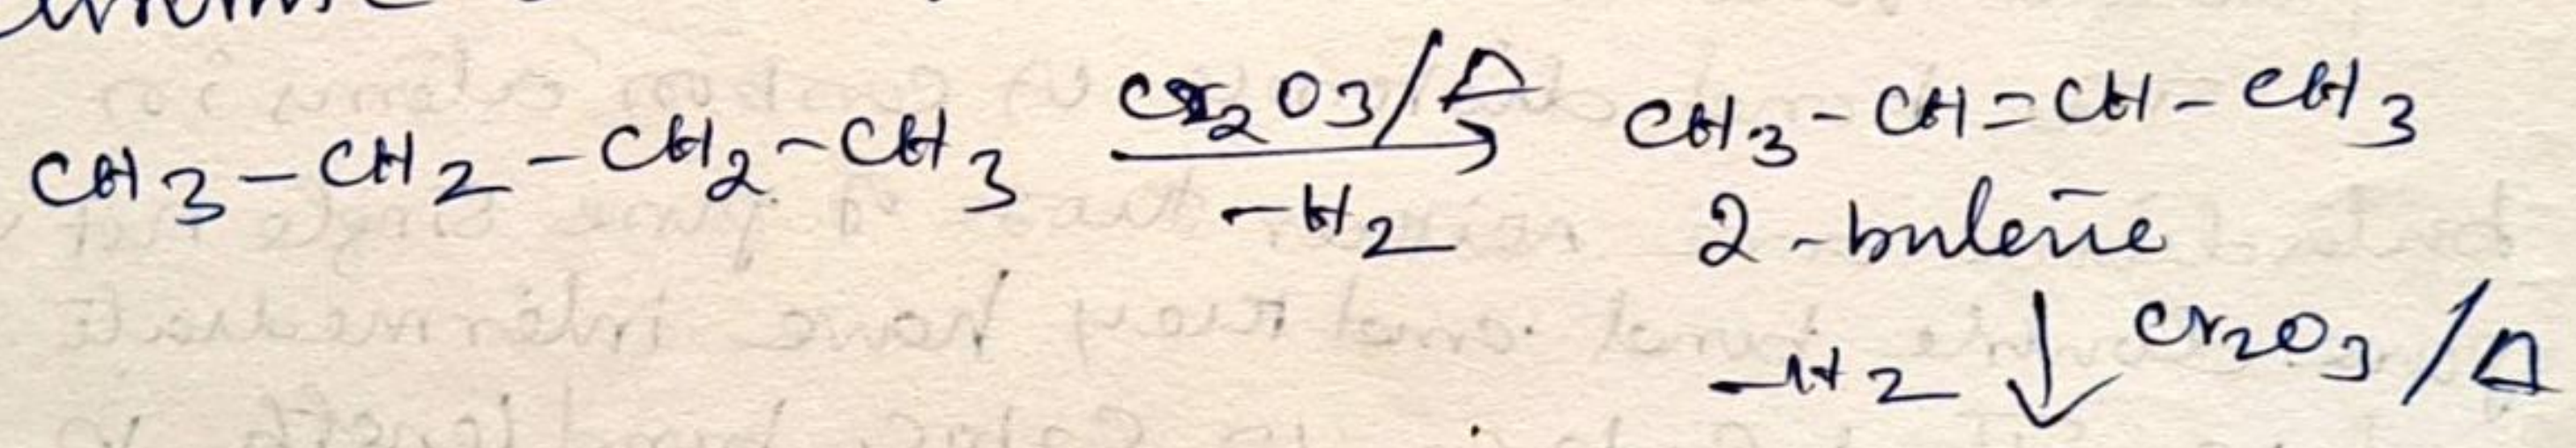 CH3-CH2-CH2-CH3 Cr2O3/Δ -H2 → CH3-CH=CH-CH3
2-butene
-H2 ↓ Cr2O3/Δ